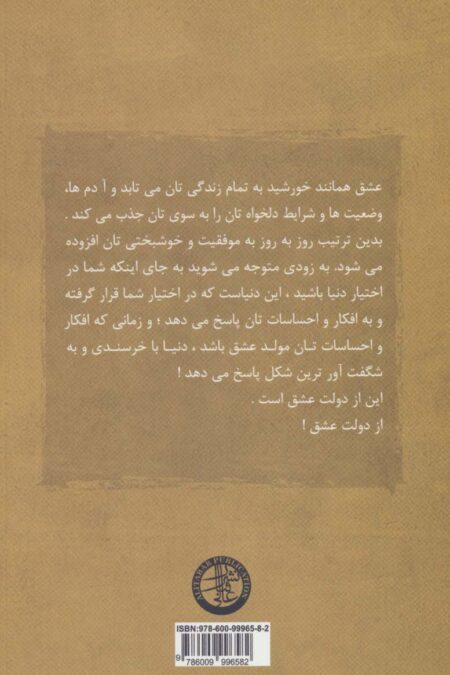 عشق همانند خورشید به تمام زندگی تان می تابد و آ دم ها،
وضعیت ها و شرایط دلخواه تان را به سوی تان جذب می کند .
بدین ترتیب روز به روز به موفقیت و خوشبختی تان افزوده
می شود. به زودی متوجه می شوید به جای اینکه شما در
اختیار دنیا باشید ، این دنیاست که در اختیار شما قرار گرفته
و به افکار و احساسات تان پاسخ می دهد ؛ و زمانی که افکار
و احساسات تان مولد عشق باشد ، دنیا با خرسندی و به
شگفت آور ترین شکل پاسخ می دهد !
این از دولت عشق است .
از دولت عشق !
PUBLICATION
ISBN:978-600-99965-8-2
9 786009 996582